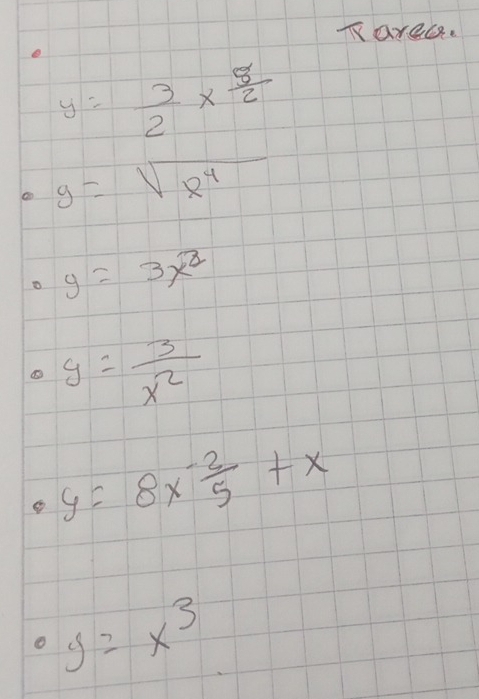 Tarea.
y = 3/2 x
• y = √x⁴
• y = 3x
• y = 3/x²
• y = 8x^(-2/5) + x
• y = x³